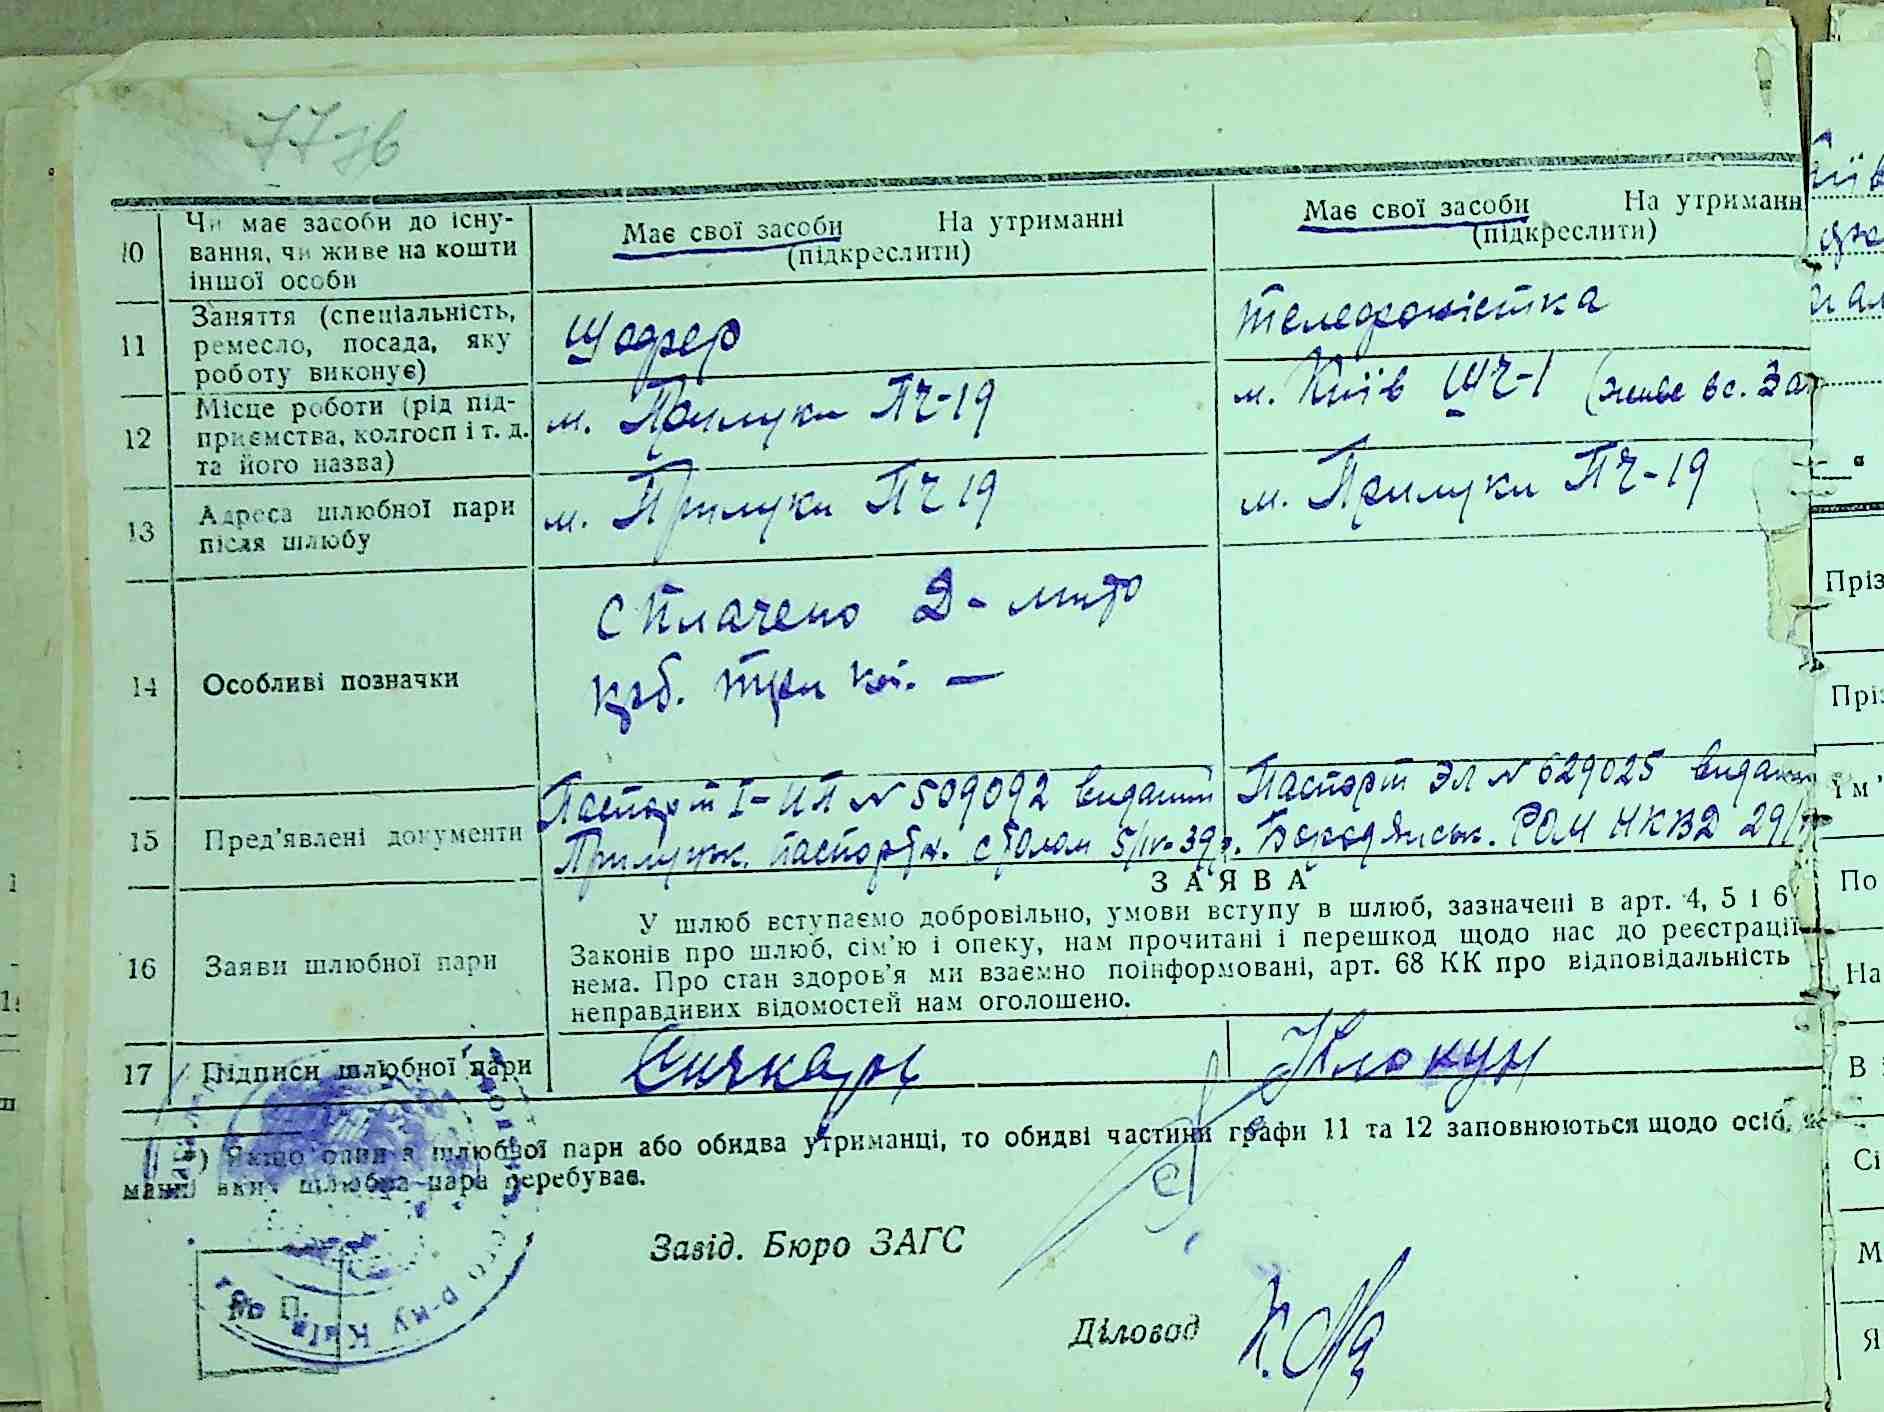 77
10 Чи має засоби до існу-
вання, чи живе на кошти
іншої особи
Має свої засоби На утриманні
(підкреслити)
Має свої засоби На утриманн
(підкреслити)
11 Заняття (спеціальність,
ремесло, посада, яку
роботу виконує)
Шофер
телефоністка
12 Місце роботи (рід під-
приємства, колгосп і т. д.
та його назва)
м. Прилуки ПЧ-19
м. Київ ШЧ-1 (живе в с.
13 Адреса шлюбної пари
після шлюбу
м. Прилуки ПЧ 19
м. Прилуки ПЧ-19
14 Особливі позначки
Сплачено мито
три
15 Пред'явлені документи
Паспорт І-ИП № 509092 виданий
Прилуцьк. паспортн. столом 5/IV-39р.
Паспорт ЭЛ № 629025 видан
Бородянськ. РОМ НКВД 29/
16 Заяви шлюбної пари
ЗАЯВА
У шлюб вступаємо добровільно, умови вступу в шлюб, зазначені в арт. 4, 5 і 6
Законів про шлюб, сім'ю і опеку, нам прочитані і перешкод щодо нас до реєстрації
нема. Про стан здоров'я ми взаємно поінформовані, арт. 68 КК про відповідальність
неправдивих відомостей нам оголошено.
17 Підписи шлюбної пари
Сичкарь
Клокун
*) Якщо один з шлюбної пари або обидва утриманці, то обидві частини графи 11 та 12 заповнюються щодо осіб,
шлюбна пара перебуває.
Завід. Бюро ЗАГС
Діловод
М. П.
р-ну Київ
Пріз
Пріз
Ім'
По
На
В
Сі
М
Я